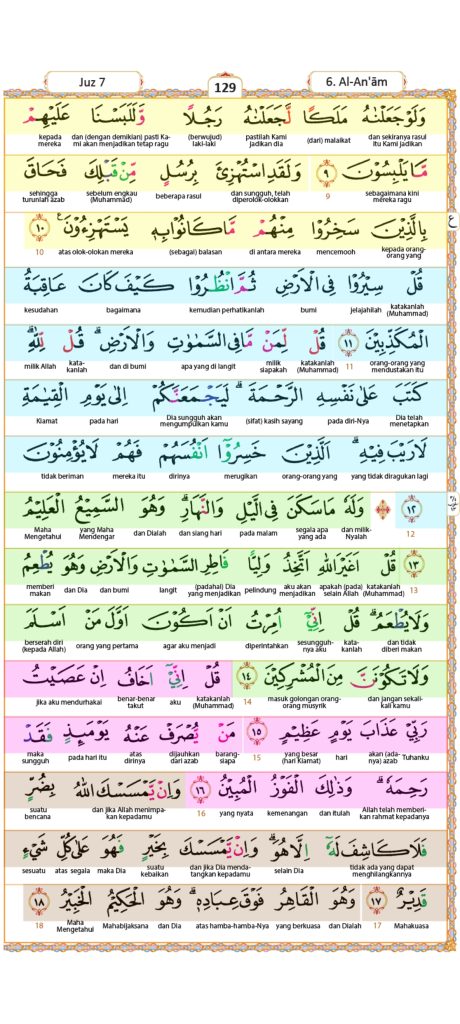 Juz 7
129
6. Al-An'ām
وَلَوْ جَعَلْنٰهُ مَلَكًا لَّجَعَلْنٰهُ رَجُلًا وَّلَلَبَسْنَا عَلَيْهِمْ
dan sekiranya rasul itu Kami jadikan (dari) malaikat pastilah Kami jadikan dia (berwujud) laki-laki dan (dengan demikian) pasti Kami akan menjadikan tetap ragu kepada mereka
مَّا يَلْبِسُوْنَ ٩ وَلَقَدِ اسْتُهْزِئَ بِرُسُلٍ مِّنْ قَبْلِكَ فَحَاقَ
sebagaimana kini mereka ragu 9 dan sungguh, telah diperolok-olokkan beberapa rasul sebelum engkau (Muhammad) sehingga turunlah azab
بِالَّذِيْنَ سَخِرُوْا مِنْهُمْ مَّا كَانُوْا بِهٖ يَسْتَهْزِءُوْنَ ࣖ ١٠
kepada orang-orang yang mencemooh di antara mereka (sebagai) balasan atas olok-olokan mereka 10
ع
قُلْ سِيْرُوْا فِى الْاَرْضِ ثُمَّ انْظُرُوْا كَيْفَ كَانَ عَاقِبَةُ
katakanlah (Muhammad) jelajahilah bumi kemudian perhatikanlah bagaimana kesudahan
الْمُكَذِّبِيْنَ ١١ قُلْ لِّمَنْ مَّا فِى السَّمٰوٰتِ وَالْاَرْضِۗ قُلْ لِّلّٰهِۗ
orang-orang yang mendustakan itu 11 katakanlah (Muhammad) milik siapakah apa yang di langit dan di bumi katakanlah milik Allah
كَتَبَ عَلٰى نَفْسِهِ الرَّحْمَةَۗ لَيَجْمَعَنَّكُمْ اِلٰى يَوْمِ الْقِيٰمَةِ
Dia telah menetapkan pada diri-Nya (sifat) kasih sayang Dia sungguh akan mengumpulkan kamu pada hari Kiamat
لَا رَيْبَ فِيْهِۗ اَلَّذِيْنَ خَسِرُوْٓا اَنْفُسَهُمْ فَهُمْ لَا يُؤْمِنُوْنَ
yang tidak diragukan lagi orang-orang yang merugikan dirinya mereka itu tidak beriman
١٢ ۞ وَلَهٗ مَا سَكَنَ فِى الَّيْلِ وَالنَّهَارِۗ وَهُوَ السَّمِيْعُ الْعَلِيْمُ
12 dan milik-Nyalah segala apa yang ada pada malam dan siang hari dan Dialah yang Maha Mendengar Maha Mengetahui
١٣ قُلْ اَغَيْرَ اللّٰهِ اَتَّخِذُ وَلِيًّا فَاطِرِ السَّمٰوٰتِ وَالْاَرْضِ وَهُوَ يُطْعِمُ
13 katakanlah (Muhammad) apakah (pada) selain Allah aku akan menjadikan pelindung (padahal) Dia yang menjadikan langit dan bumi dan Dia memberi makan
وَلَا يُطْعَمُۗ قُلْ اِنِّيْٓ اُمِرْتُ اَنْ اَكُوْنَ اَوَّلَ مَنْ اَسْلَمَ
dan tidak diberi makan katakanlah sesungguhnya aku diperintahkan agar aku menjadi orang yang pertama berserah diri (kepada Allah)
وَلَا تَكُوْنَنَّ مِنَ الْمُشْرِكِيْنَ ١٤ قُلْ اِنِّيْٓ اَخَافُ اِنْ عَصَيْتُ
dan jangan sekali-kali kamu masuk golongan orang-orang musyrik 14 katakanlah (Muhammad) aku benar-benar takut jika aku mendurhakai
رَبِّيْ عَذَابَ يَوْمٍ عَظِيْمٍ ١٥ مَنْ يُّصْرَفْ عَنْهُ يَوْمَىِٕذٍ فَقَدْ
Tuhanku akan (adanya) azab hari yang besar (hari Kiamat) 15 barangsiapa dijauhkan dari azab atas dirinya pada hari itu maka sungguh
رَحِمَهٗۗ وَذٰلِكَ الْفَوْزُ الْمُبِيْنُ ١٦ وَاِنْ يَّمْسَسْكَ اللّٰهُ بِضُرٍّ
Allah telah memberikan rahmat kepadanya dan itulah kemenangan yang nyata 16 dan jika Allah menimpakan kepadamu suatu bencana
فَلَا كَاشِفَ لَهٗٓ اِلَّا هُوَۗ وَاِنْ يَّمْسَسْكَ بِخَيْرٍ فَهُوَ عَلٰى كُلِّ شَيْءٍ
tidak ada yang dapat menghilangkannya selain Dia dan jika Dia mendatangkan kepadamu suatu kebaikan maka Dia atas segala sesuatu
قَدِيْرٌ ١٧ وَهُوَ الْقَاهِرُ فَوْقَ عِبَادِهٖۗ وَهُوَ الْحَكِيْمُ الْخَبِيْرُ ١٨
Mahakuasa 17 dan Dialah yang berkuasa atas hamba-hamba-Nya dan Dia Mahabijaksana Maha Mengetahui 18